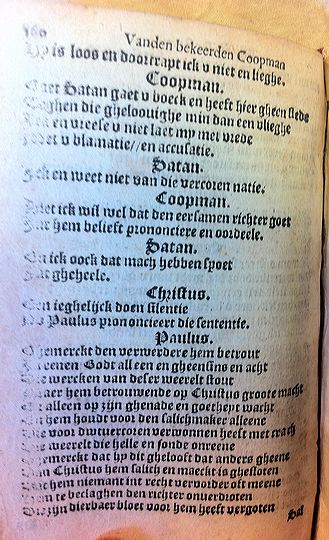 Vanden bekeerden Coopman
is loos en doortrapt ick v niet en lieghe.
Coopman.
Satan gaet v boeck en heeft hier gheen stede
die gheloovighe min dan een vlieghe
en vreese v niet laet my met vrede
v blamatie// en accusatie.
Satan.
en weet niet van die vercoren natie.
Coopman.
ick wil wel dat den eersamen richter goet
hem belieft prononciere en oordeele.
Satan.
ick oock dat mach hebben spoet
gheheele.
Christus.
Een ieghelijck doen silentie
Paulus prononcieert die sententie.
Paulus.
Ghemerckt den verweerdere hem betrout
eenen Godt alleen en gheensins en acht
wercken van deser weerelt stout
hem betrouwende op Christus groote macht
alleen op zijn ghenade en goetheyt wacht
hem houdt voor den salichmaker alleene
voor verwonnen heeft met cracht
weerelt die helle en sonde onreene
Ghemerckt dat hy dit gelooft dat anders gheene
Christus hem salich en maeckt is ghesloten
hem niemant int recht vervoorder oft meene
te beclaghen den richter onverdroten
zijn dierbaer bloet voor hem heeft vergoten